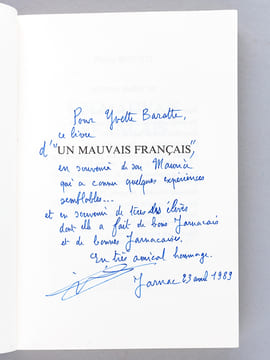 Pour Yvette Baratte,
ce livre
d'"UN MAUVAIS FRANÇAIS",
en souvenir de son Maurice
qui a connu quelques expériences
semblables...
et en souvenir de tous ses élèves
dont elle a fait de bons Jarnacais
et de bonnes Jarnacaises.
En très amical hommage.
Jarnac 23 avril 1989